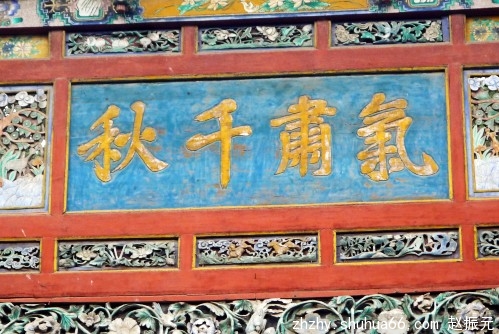 氣肅千秋
zhzhy.shuhua66.com 赵振元